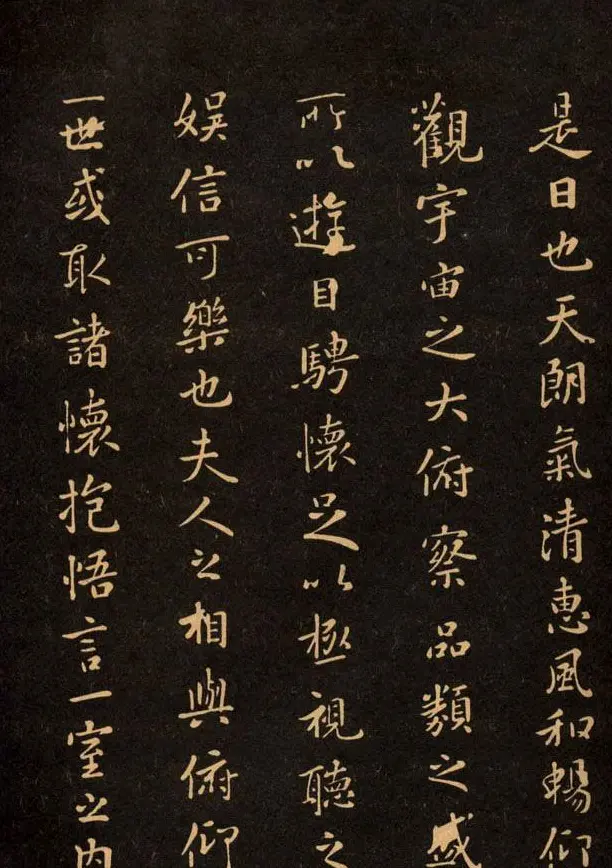 是日也天朗氣清惠風和暢仰
觀宇宙之大俯察品類之盛
所以遊目騁懷足以極視聽之
娱信可樂也夫人之相與俯仰
一世或取諸懷抱悟言一室之内